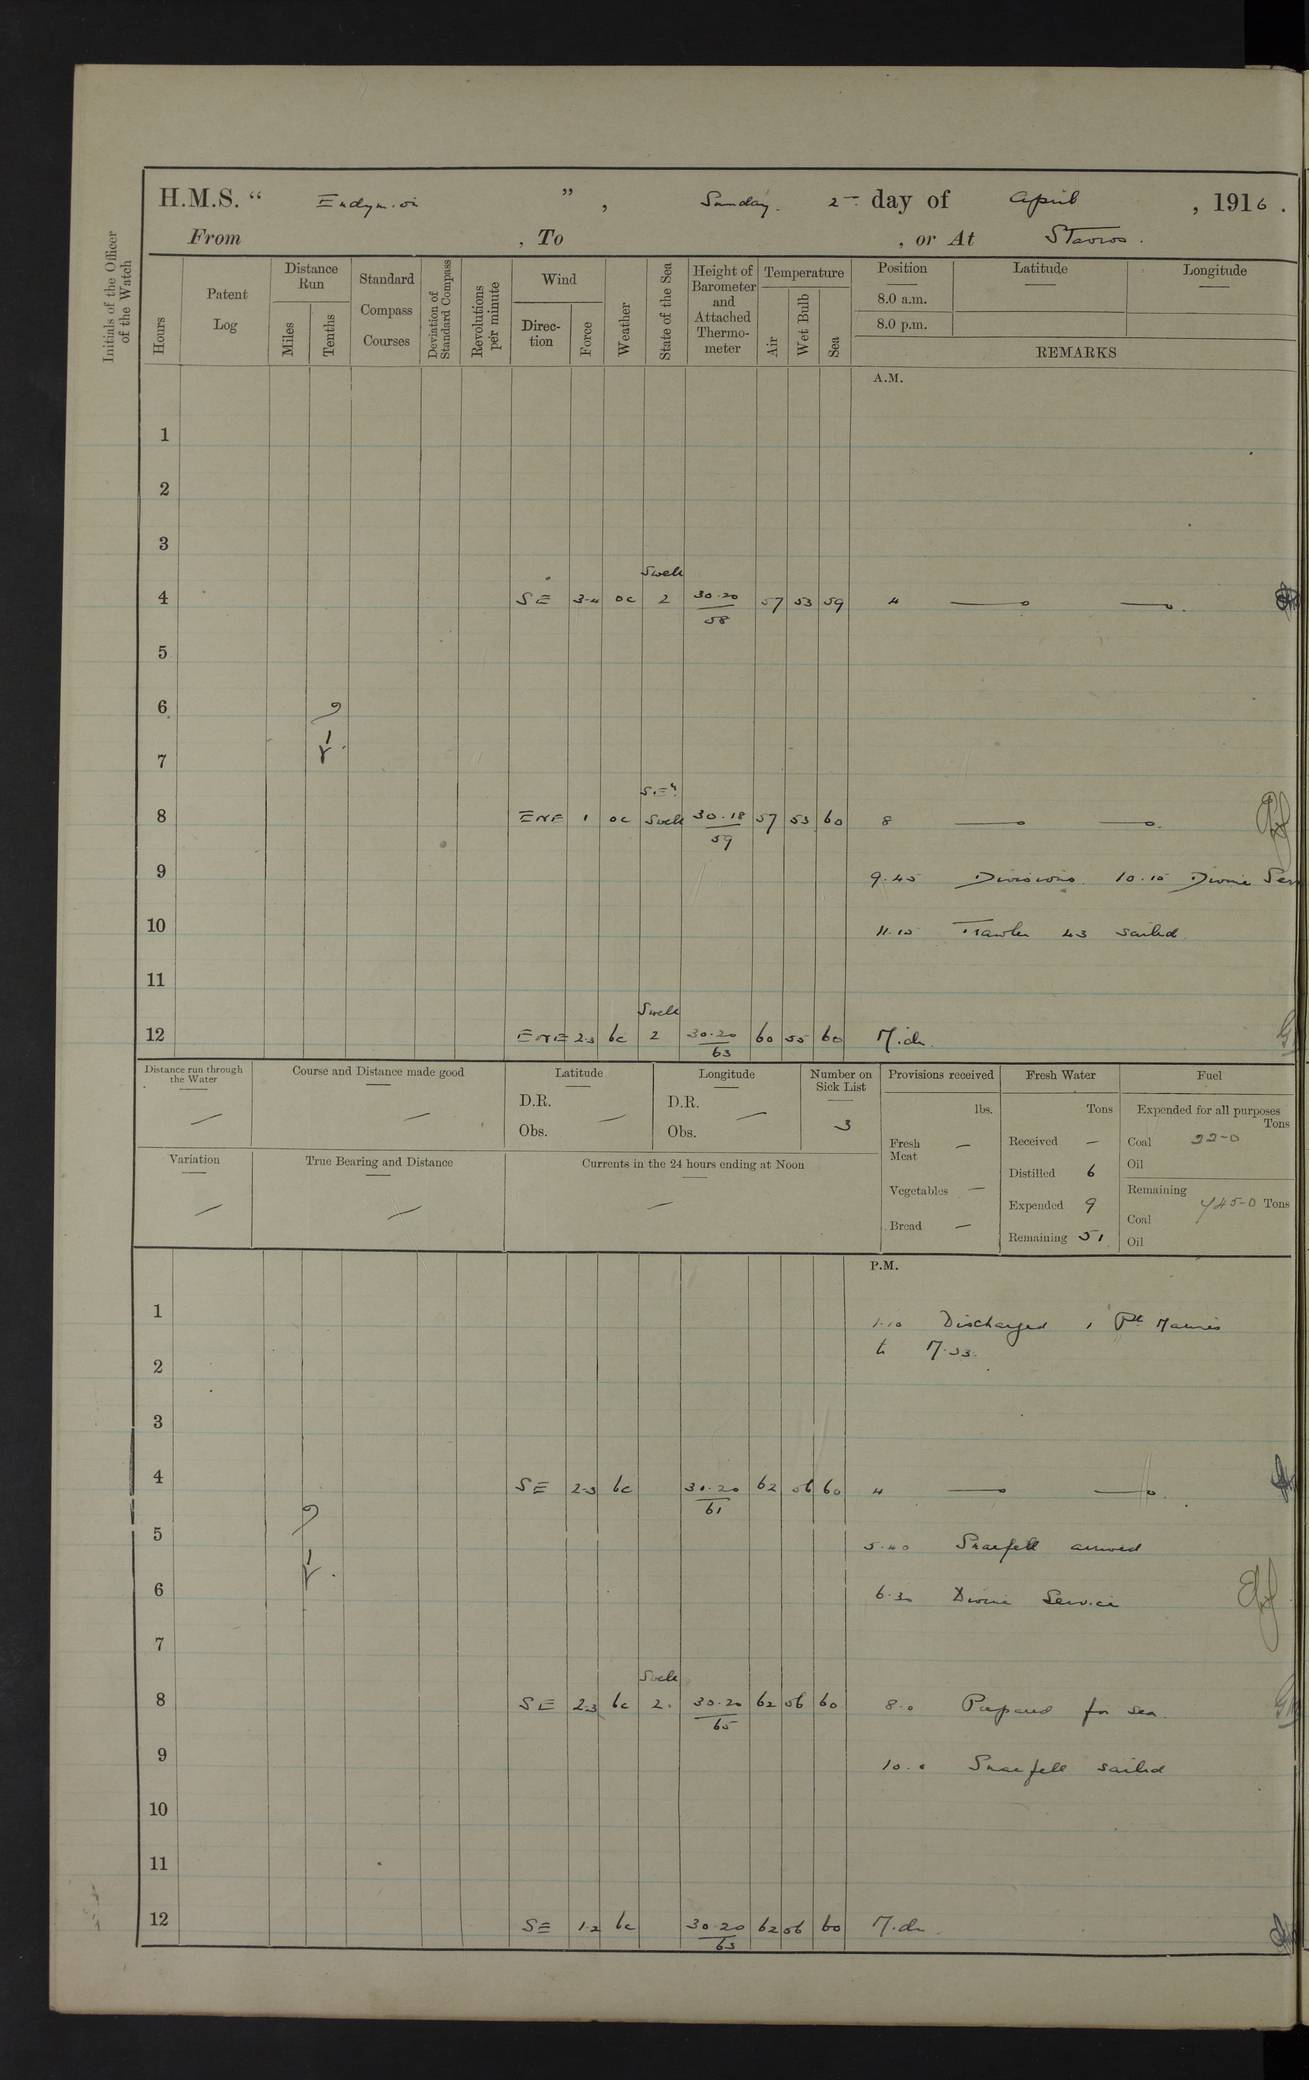 H.M.S. “ Endymion ” , Sunday. 2nd day of April , 1916 .
From , To , or At Stavros .
Initials of the Officer of the Watch
Hours Patent Log Distance Run Miles Tenths Standard Compass Courses Deviation of Standard Compass Revolutions per minute Wind Direc-tion Force Weather State of the Sea Height of Barometer and Attached Thermo-meter Temperature Air Wet Bulb Sea Position 8.0 a.m. 8.0 p.m. Latitude Longitude
REMARKS
A.M.
1
2
3
Swell
4 SE 3-4 oc 2 30.20 57 53 59 4
58
5
6
7
8 ENE 1 oc Swell 30.18 57 53 60 8
59
9 9.45 Divisions. 10.15 Divine Ser
10 11.10 Trawler 43 sailed
11
Swell
12 ENE 2-3 bc 2 30.20 60 55 60 M.dn.
63
Distance run through the Water Course and Distance made good Latitude Longitude Number on Sick List Provisions received Fresh Water Fuel
D.R. D.R. lbs. Tons Expended for all purposes Tons
Obs. Obs. 3 Fresh Meat — Received — Coal 22-0
Oil
Variation True Bearing and Distance Currents in the 24 hours ending at Noon Distilled 6
Vegetables — Expended 9 Remaining Coal 745-0 Tons
Bread — Remaining 51 Oil
P.M.
1 1.10 Discharged 1 Pte Marines
2 to M.33.
3
4 SE 2-3 bc 30.20 62 56 60 4
61
5 5.40 Snaefell arrived
6 6.30 Divine Service
7
Swell
8 SE 2-3 bc 2. 30.20 62 56 60 8.0 Prepared for sea.
65
9 10.0 Snaefell sailed
10
11
12 SE 1-2 bc 30.20 62 56 60 M.dn.
63